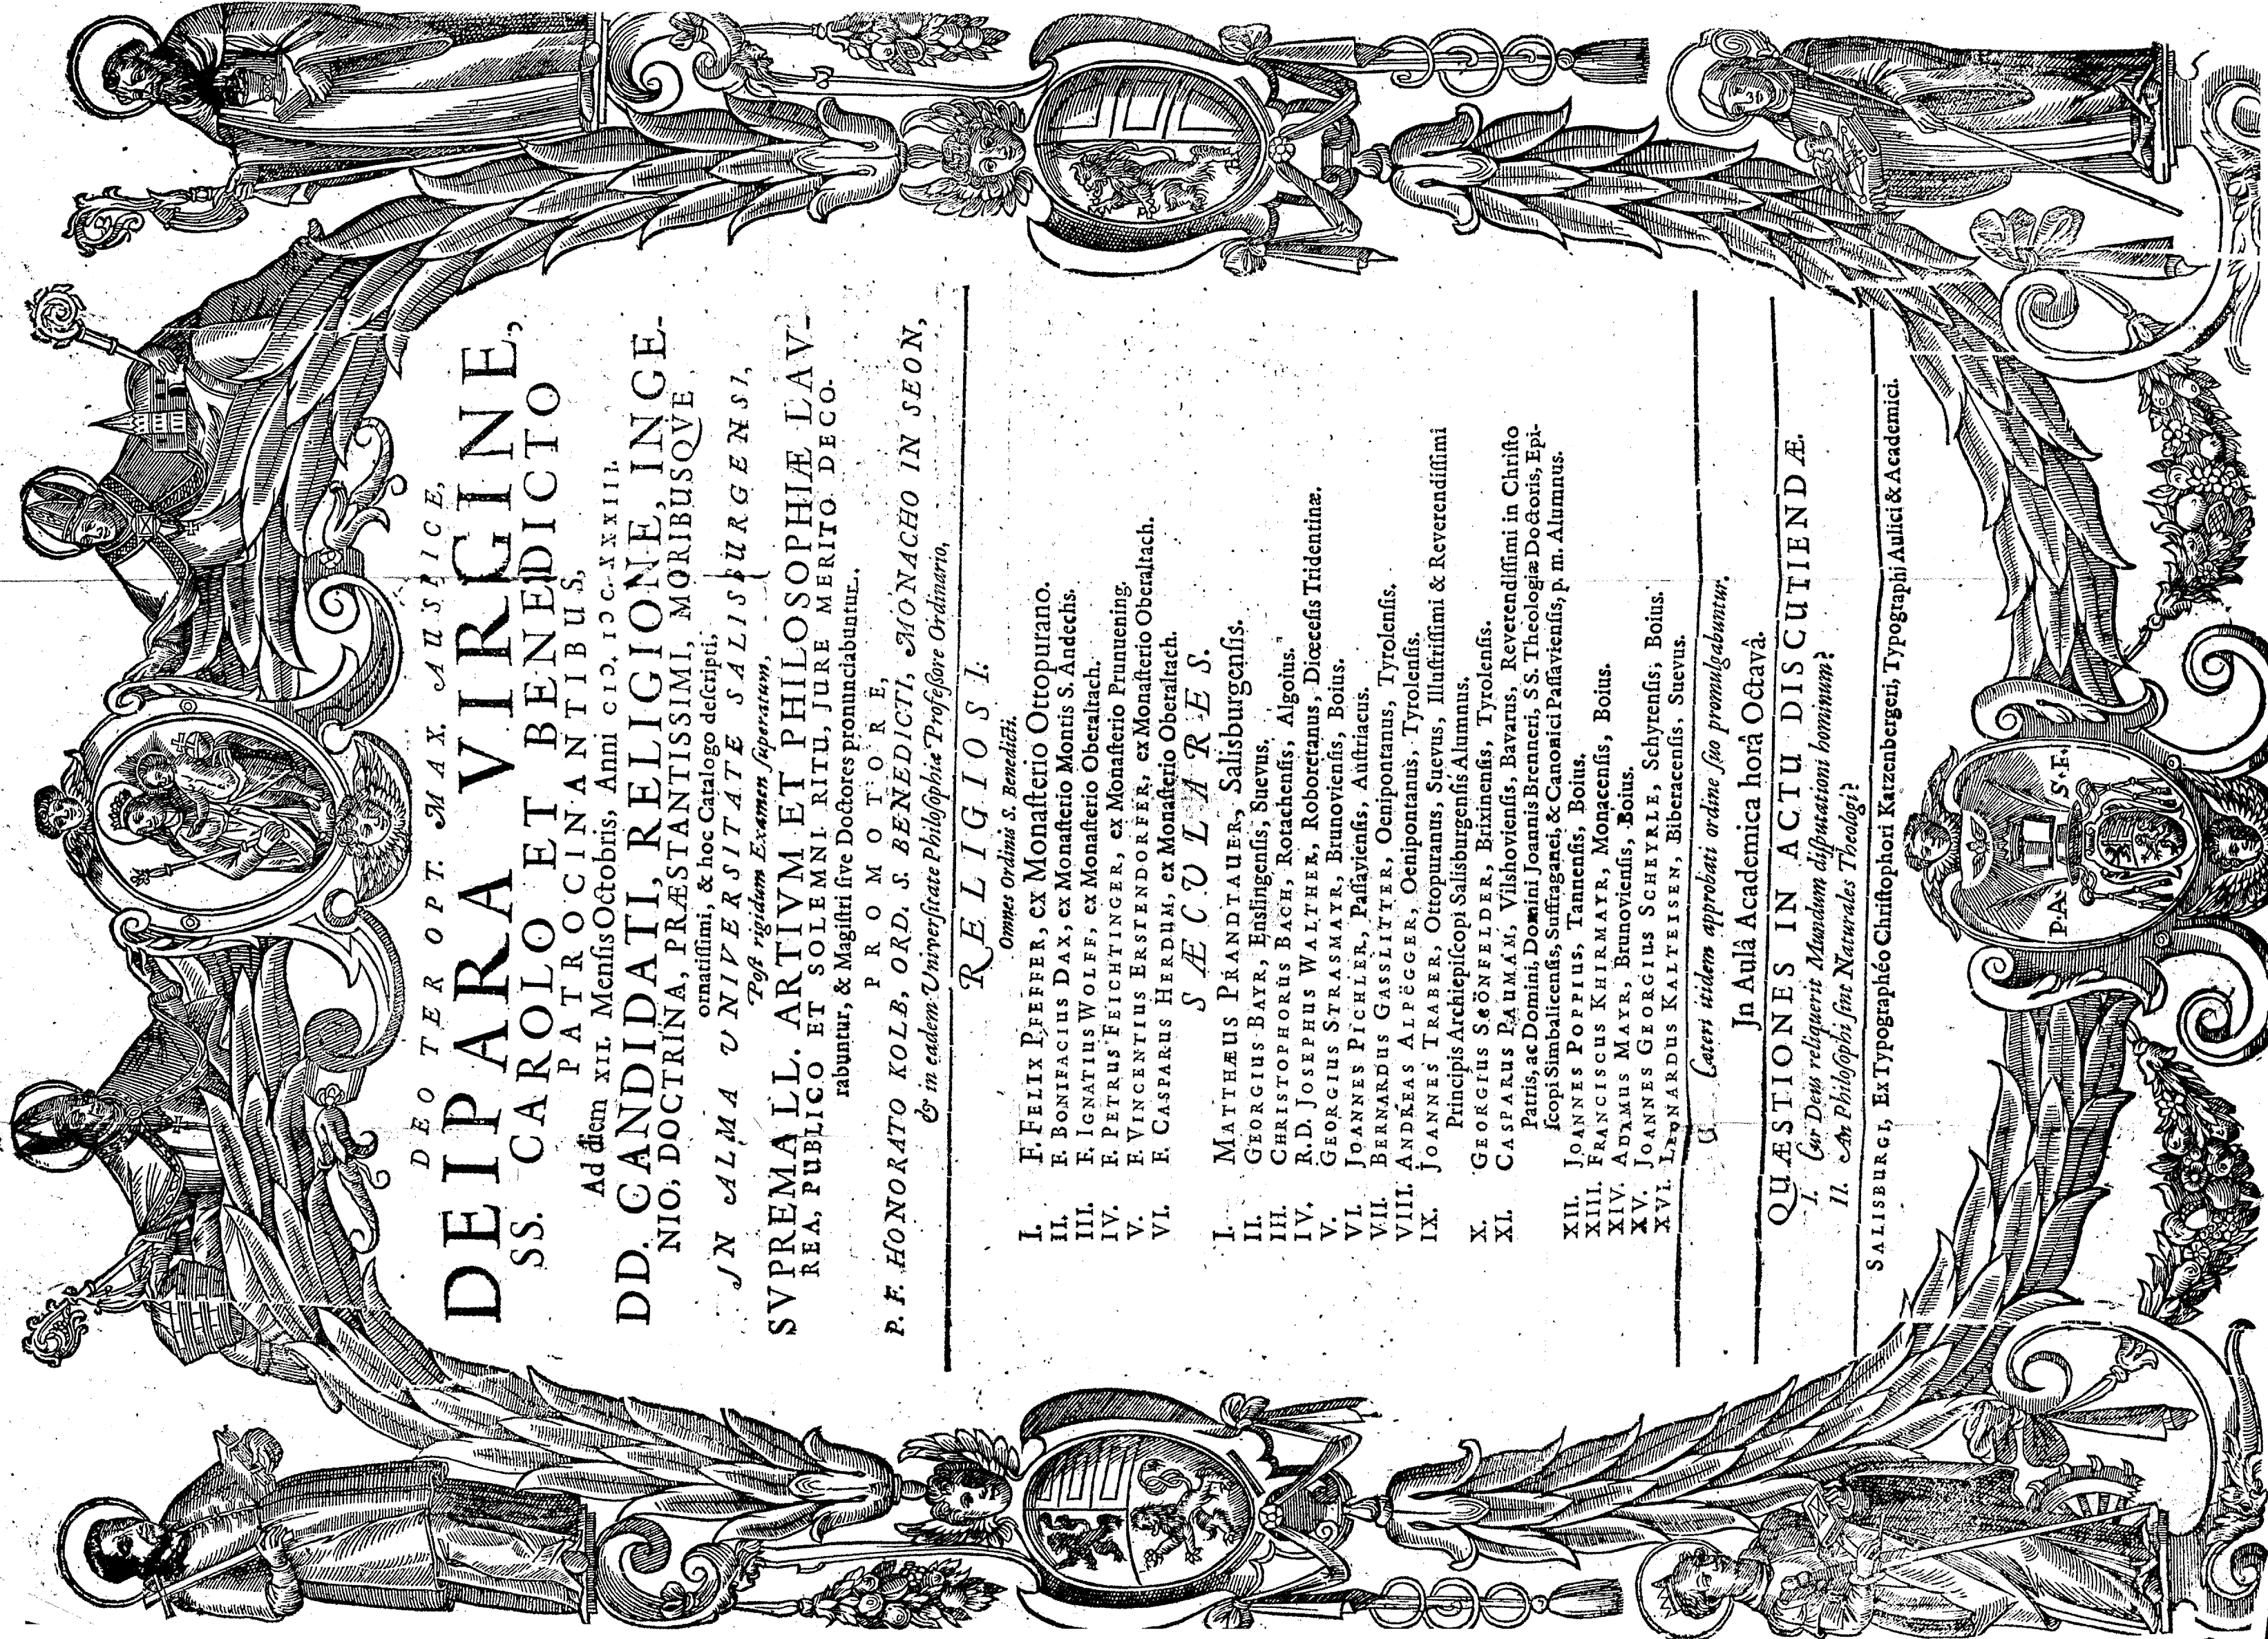 DEO TER OPT. MAX. AUSPICE,
DEIPARA VIRGINE,
SS. CAROLO ET BENEDICTO
PATROCINANTIBUS,
Ad diem XII. Mensis Octobris, Anni CIↃ. IↃC. XXXIII.
DD. CANDIDATI, RELIGIONE, INGE-
NIO, DOCTRINA, PRÆSTANTISSIMI, MORIBUSQVE
ornatiſſimi, & hoc Catalogo deſcripti,
JN ALMA VNIVERSITATE SALISBURGENSI,
Poſt rigidum Examen ſuperatum,
SVPREMA LL. ARTIVM ET PHILOSOPHIÆ LAV-
REA, PUBLICO ET SOLEMNI RITU, JURE MERITO DECO-
rabuntur, & Magiſtri ſive Doctores pronunciabuntur.
PROMOTORE,
P. F. HONORATO KOLB, ORD. S. BENEDICTI, MONACHO IN SEON,
& in eadem Univerſitate Philoſophiæ Profeſſore Ordinario,
RELIGIOSI.
Omnes Ordinis S. Benedicti.
I. F. FELIX PFEFFER, ex Monaſterio Ottopurano.
II. F. BONIFACIUS DAX, ex Monaſterio Montis S. Andechs.
III. F. IGNATIUS WOLFF, ex Monaſterio Oberaltach.
IV. F. PETRUS FEICHTINGER, ex Monaſterio Prunuening.
V. F. VINCENTIUS ERSTENDORFER, ex Monaſterio Oberaltach.
VI. F. CASPARUS HERDUM, ex Monaſterio Oberaltach.
SÆCULARES.
I. MATTHÆUS PRANDTAUER, Salisburgenſis.
II. GEORGIUS BAYR, Enslingenſis, Suevus.
III. CHRISTOPHORUS BACH, Rotachenſis, Algoius.
IV. R.D. JOSEPHUS WALTHER, Roboretanus, Diœceſis Tridentinæ.
V. GEORGIUS STRASMAYR, Brunovienſis, Boius.
VI. JOANNES PICHLER, Paſſavienſis, Auſtriacus.
VII. BERNARDUS GASSLITTER, Oenipontanus, Tyrolenſis.
VIII. ANDREAS ALPÖGGER, Oenipontanus, Tyrolenſis.
IX. JOANNES TRABER, Ottopuranus, Suevus, Illuſtriſſimi & Reverendiſſimi
Principis Archiepiſcopi Salisburgenſis Alumnus.
X. GEORGIUS SeÖNFELDER, Brixinenſis, Tyrolenſis.
XI. CASPARUS PAUMAM, Vilshovienſis, Bavarus, Reverendiſſimi in Chriſto
Patris, ac Domini, Domini Joannis Brenneri, SS. Theologiæ Doctoris, Epi-
ſcopi Simbalicenſis, Suffraganei, & Canonici Paſſavienſis, p. m. Alumnus.
XII. JOANNES POPPIUS, Tannenſis, Boius.
XIII. FRANCISCUS KHIRMAYR, Monacenſis, Boius.
XIV. ADAMUS MAYR, Brunovienſis, Boius.
XV. JOANNES GEORGIUS SCHEYRLE, Schyrenſis, Boius.
XVI. LEONARDUS KALTEISEN, Biberacenſis, Suevus.
Cæteri itidem approbati ordine ſuo promulgabuntur.
Jn Aulâ Academica horâ Octavâ.
QUÆSTIONES IN ACTU DISCUTIENDÆ.
I. Cur Deus reliquerit Mundum diſputationi hominum?
II. An Philoſophi ſint Naturales Theologi?
SALISBURGI, Ex Typographéo Chriſtophori Katzenbergeri, Typographi Aulici & Academici.
P.A. S.E.